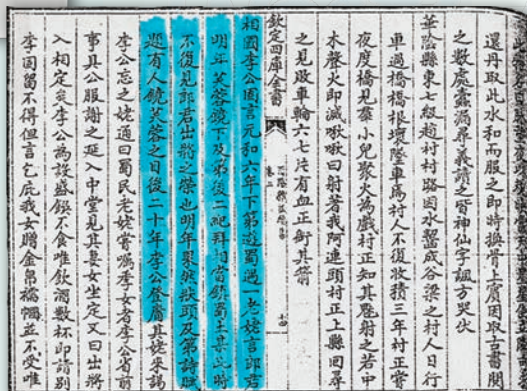 還丹取此水和而服之即時換骨上賓因取古書閱
之數處蠹漏尋義讀之皆神仙字諷方哭伏
華陰縣東七級趙村村路因水齧成谷梁之村人日行
車過橋橋根壞墜車焉村人不復收積三年村正嘗
夜度橋見羣小兒聚火為戲村正知其魅射之若中
木聲火即滅啾啾曰射著我阿連頭村正上縣回尋
之見敗車輪六七片有血正銜其箭
欽定四庫全書
卷二
十四
相國李公固言元和六年下第遊蜀遇一老姥言郎君
明年芙蓉鏡下及第後二紀拜相當鎮蜀土某此時
不復見郎君出將之榮也明年果然狀頭及第詩賦
題有人鏡芙蓉之目後二十年李公登庸其姥來謁
李公忘之姥通曰蜀民老姥嘗囑李女者李公省前
事具公服謝之延入中堂見其妻女坐定又曰出將
入相定矣李公為設盛饌不食唯飲酒數杯即請別
李固留不得但言乞庇我女贈金帛襦幗並不受唯